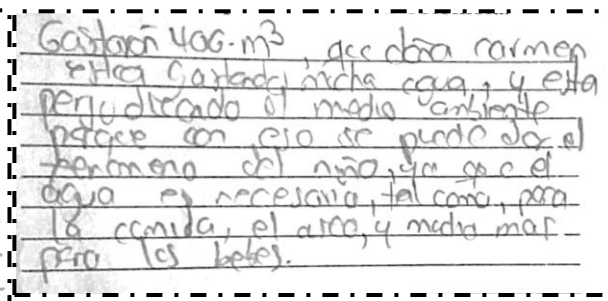 Gastaron 406.m³, que doña carmen
esta Gastando mcha agua, y esta
perjudicando el medio ambiente
porque con eso se puede dar el
fenomeno del niño, ya que el
agua es necesaria, tal como, para
la comida, el aseo, y mucho mas
para los bebes.